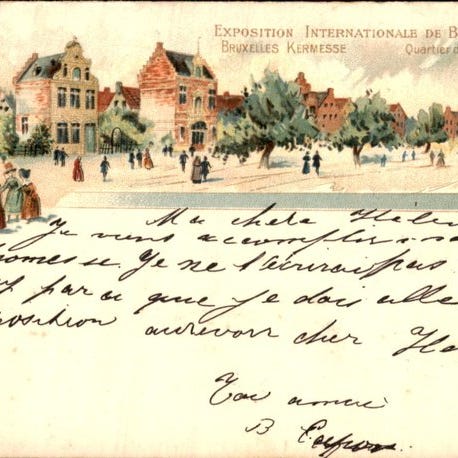 EXPOSITION INTERNATIONALE DE B
BRUXELLES KERMESSE Quartier d
Ma chere Helen
Je viens accomplir
omesse. Je ne t'écrirai pas
par ce que je dois alle
position aurevoir cher He
Ton amie
B